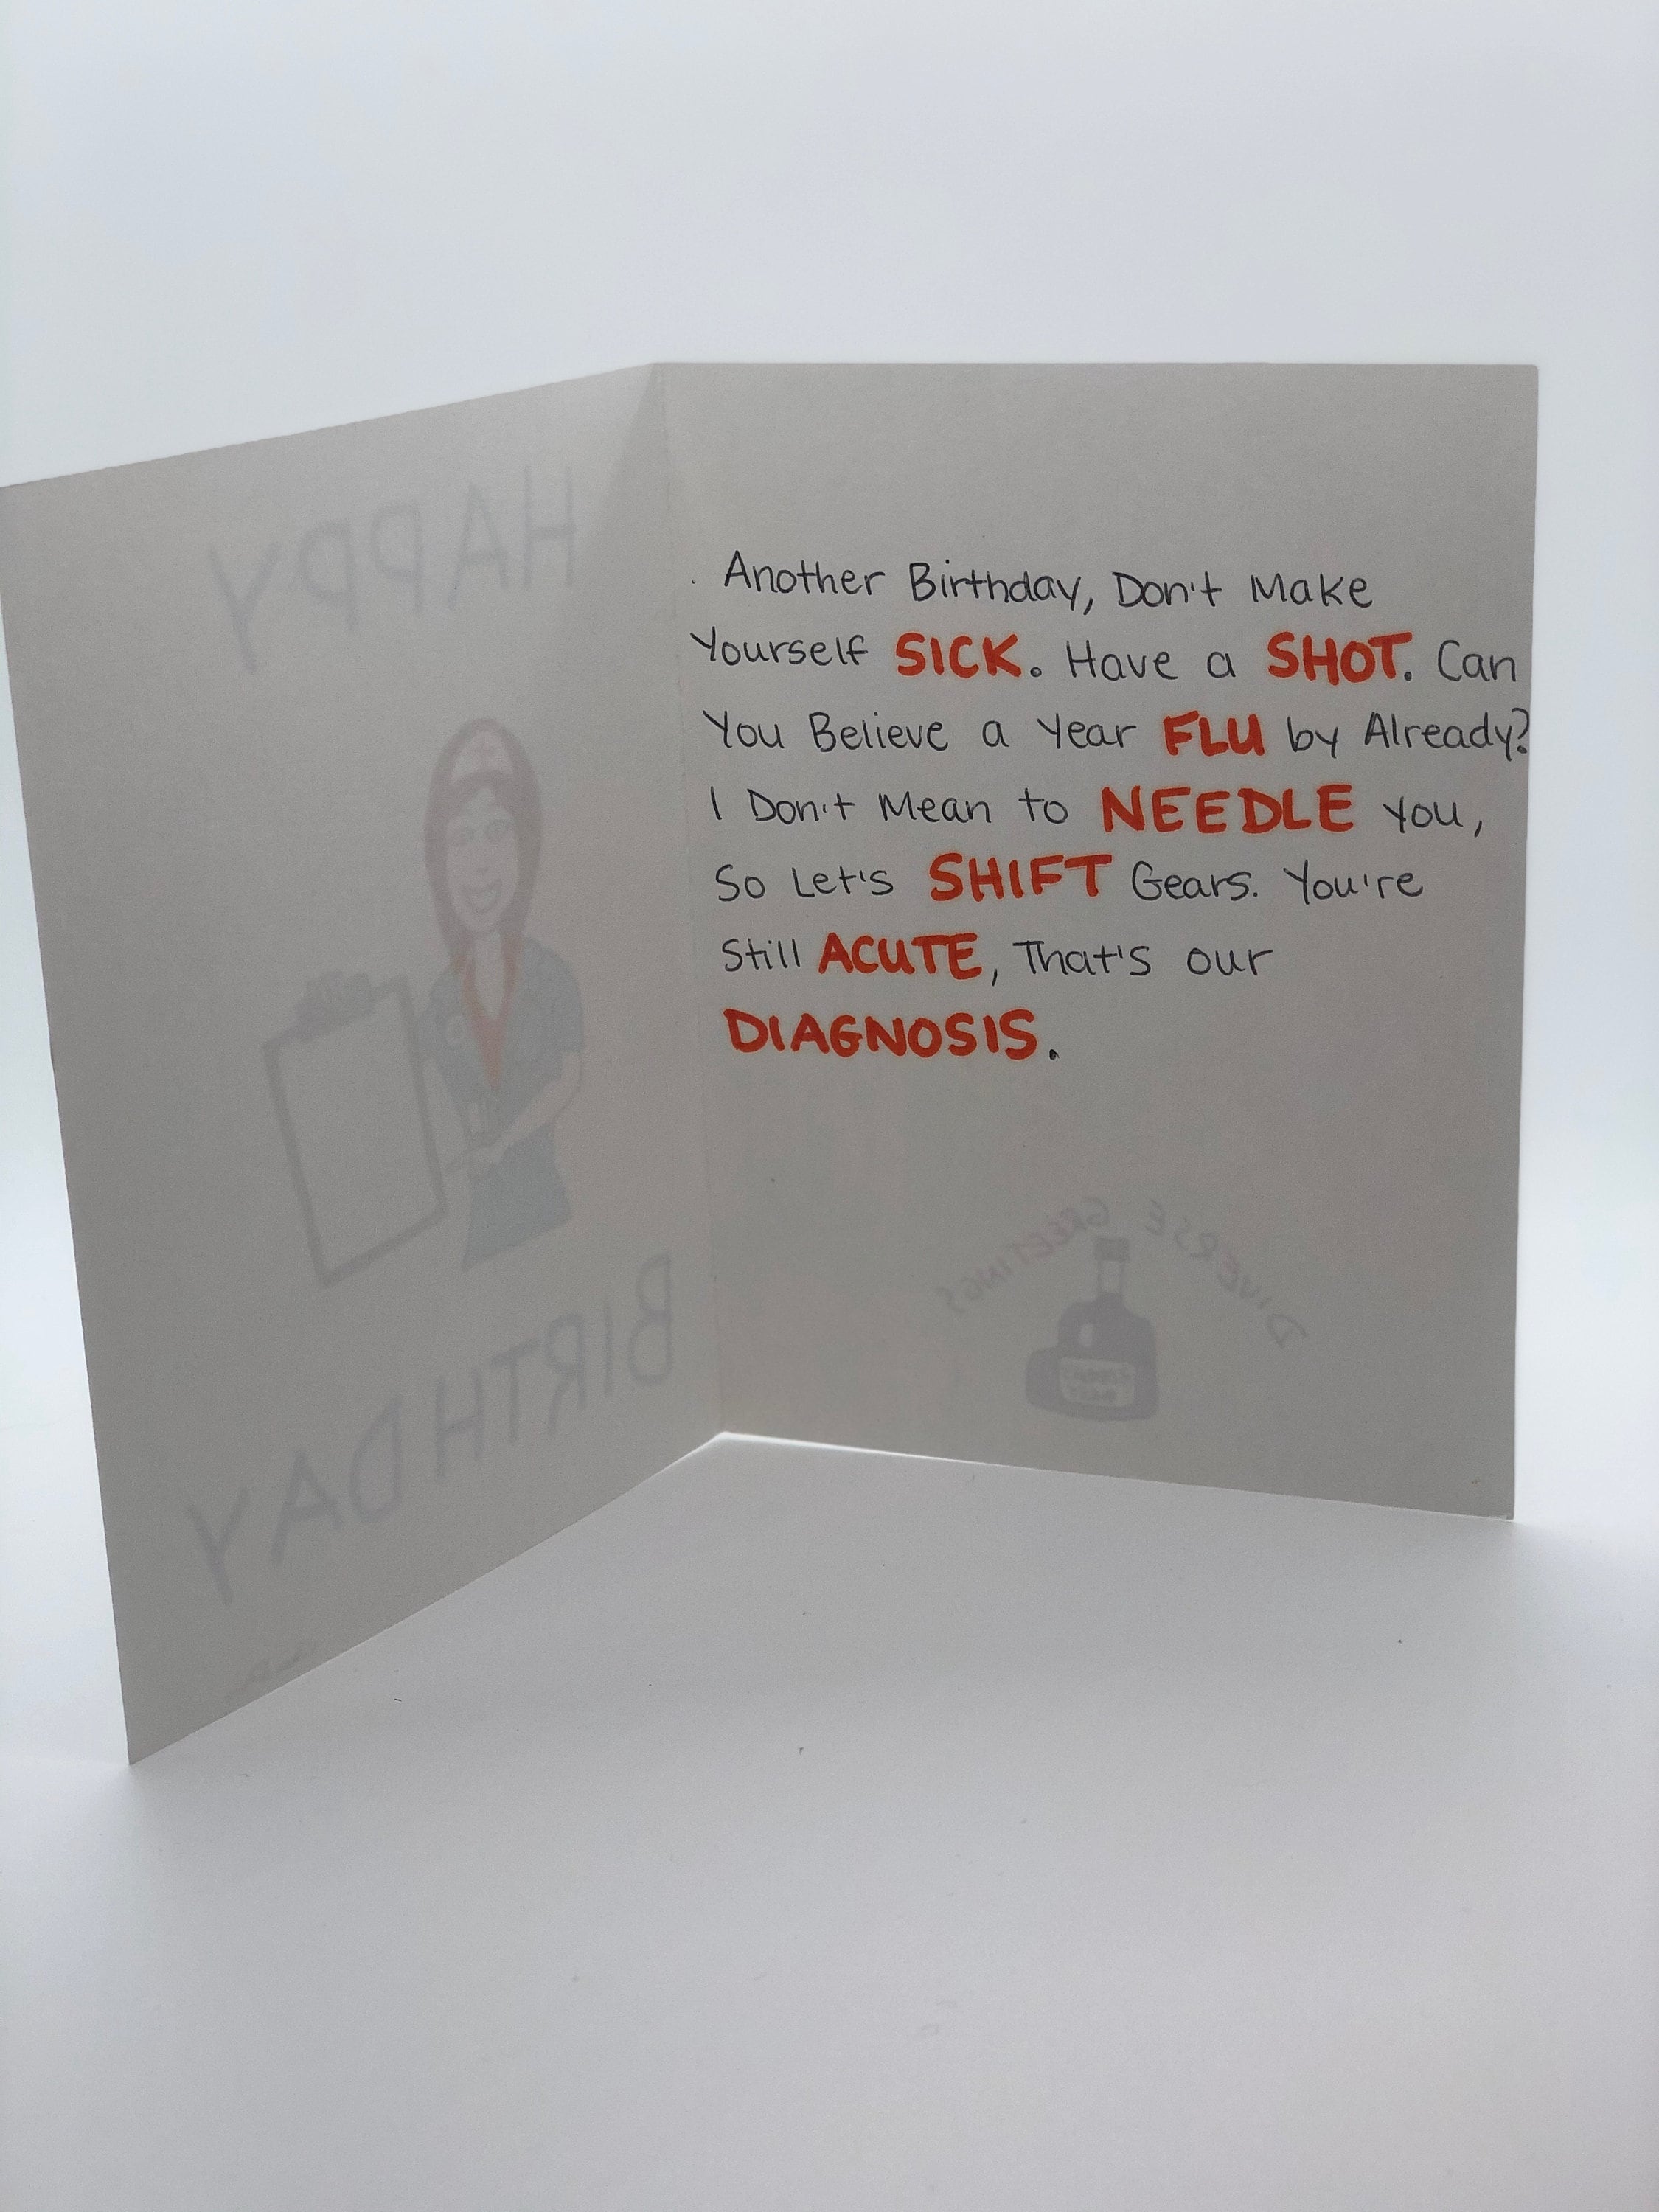 HAPPY
BIRTHDAY
Another Birthday, Don't Make
Yourself SICK. Have a SHOT. Can
You Believe a Year FLU by Already?
I Don't Mean to NEEDLE you,
So Let's SHIFT Gears. You're
Still ACUTE, That's our
DIAGNOSIS.
DIVERSE GREETINGS